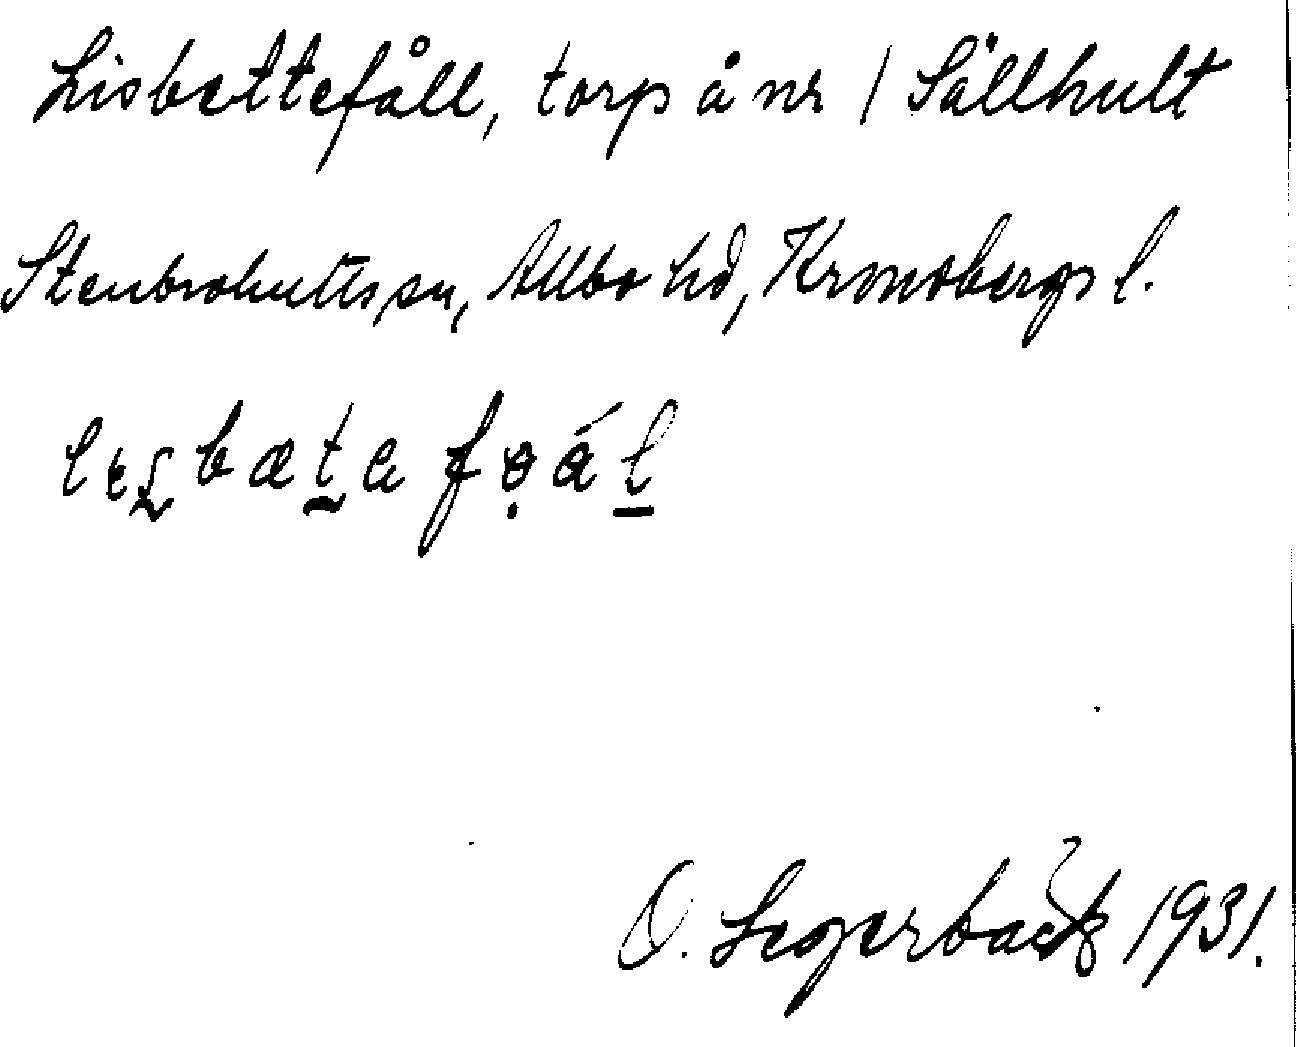 Lisbettefåll, torp å nr 1 Sällhult
Stenbrohults sn, Allbo hd, Kronobergs l.
O. Segerbäck 1931.